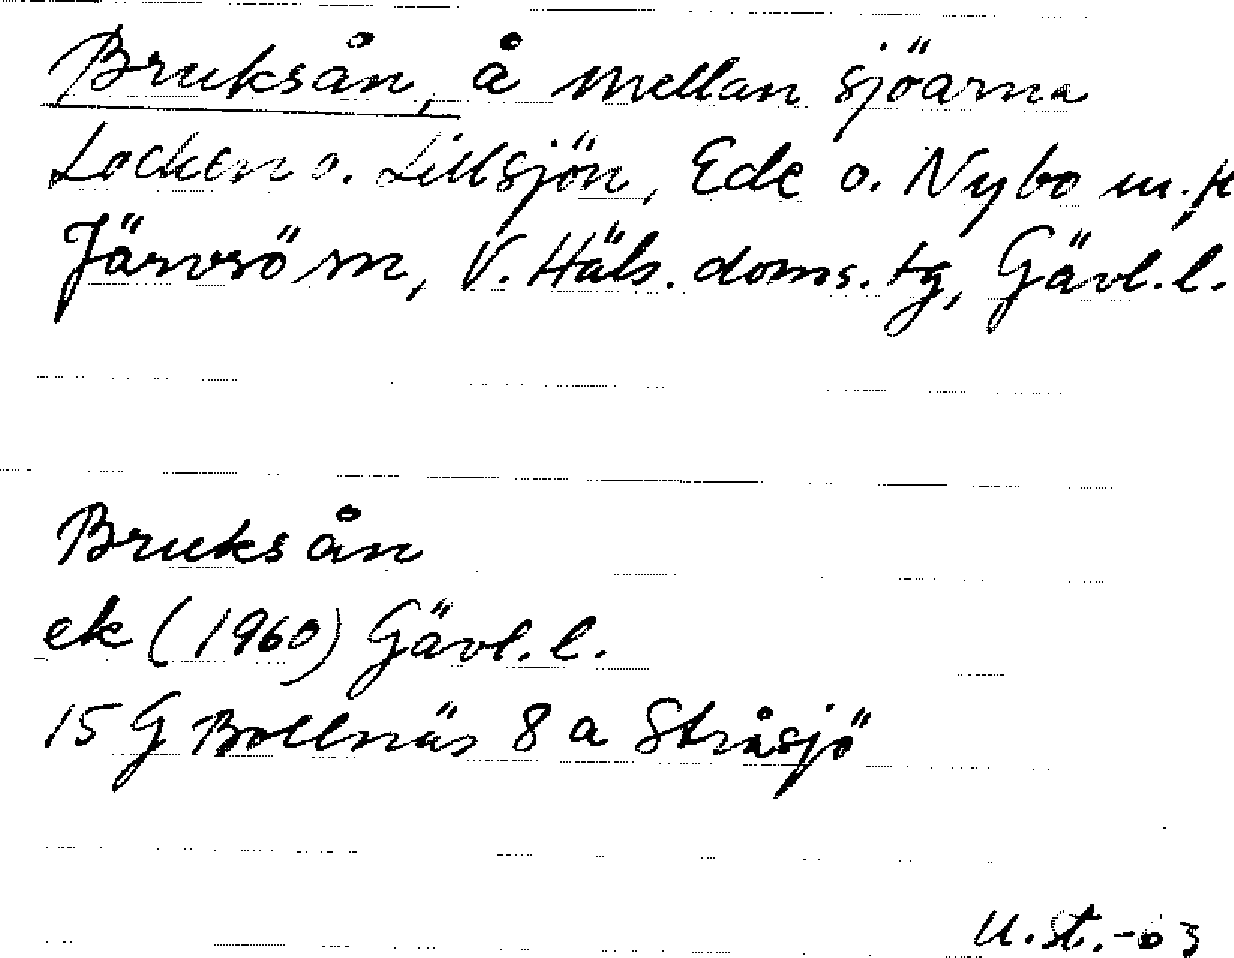 Bruksån, å mellan sjöarna
Locken o. Lillsjön, Ede o. Nybo m.fl
Järvsö sn, V. Häls. doms. tg, Gävl. l.
Bruksån
ek (1960) Gävl. l.
15 G Bollnäs 8 a Stråsjö
U.st.-03